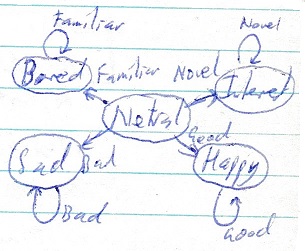 Familiar
Novel
Bored Familiar Novel Interest
Netral
Good
Sad Bad
Happy
Bad
Good